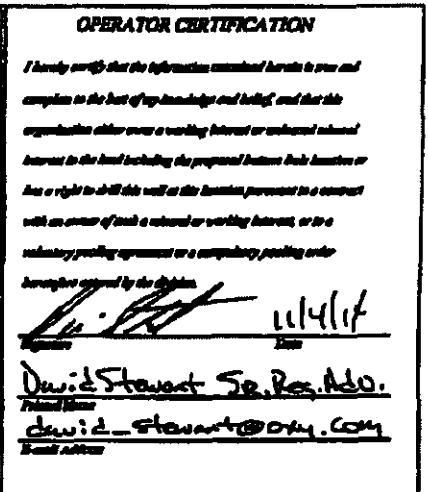 OPERATOR CERTIFICATION
I hereby certify that the information contained herein is true and
complete to the best of my knowledge and belief, and that this
organization either owns a working interest or unleased mineral
interest in the land including the proposed bottom hole location or
has a right to drill this well at this location pursuant to a contract
with an owner of such a mineral or working interest, or to a
voluntary pooling agreement or a compulsory pooling order
heretofore entered by the division.
11/4/1
Signature Date
David Stewart Sr. Reg. Adv.
Printed Name
david_stewart@oxy.com
E-mail Address